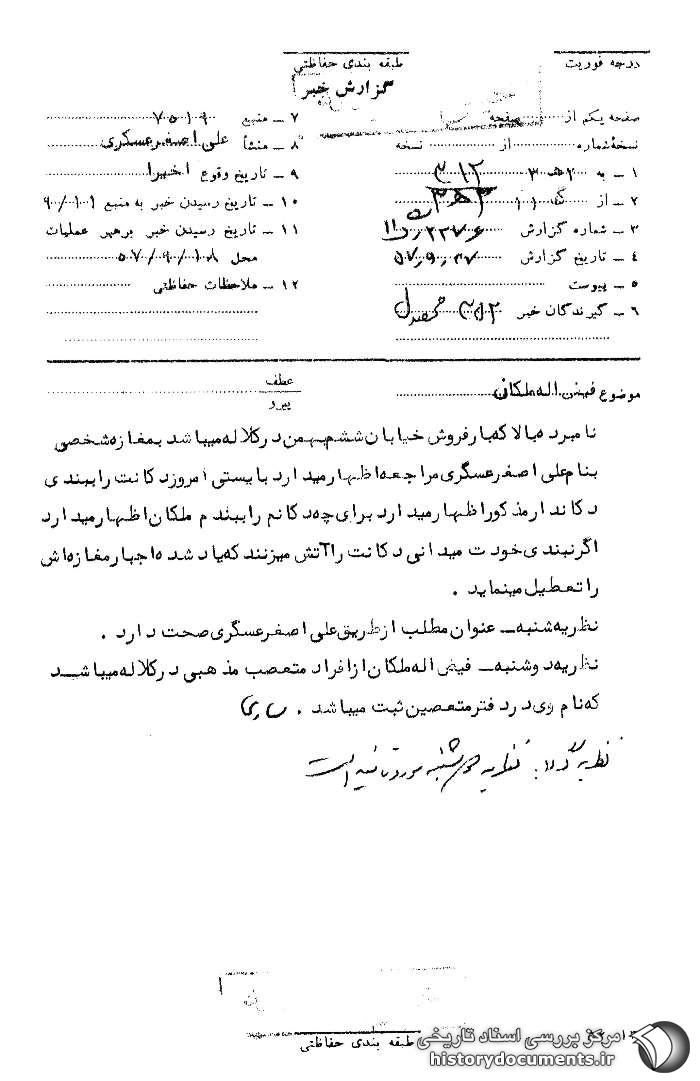 درجه فوریت
طبقه بندی حفاظتی
گزارش خبر
صفحه یکم از صفحه
نسخه شماره از نسخه
۱ ـ به ۲ هـ ۳ ۳۱۲
۲ ـ از
۳ ـ شماره گزارش
۴ ـ تاریخ گزارش
۵ ـ پیوست
۶ ـ گیرندگان خبر
۷ ـ منبع ۷۵۱۹
۸ ـ منشأ علی اصغر عسگری
۹ ـ تاریخ وقوع اخیرا
۱۰ ـ تاریخ رسیدن خبر به منبع
۱۱ ـ تاریخ رسیدن خبر برهبر عملیات
محل ۵۷/۹/۱۸
۱۲ ـ ملاحظات حفاظتی
موضوع فیض اله ملکان
عطف
پیرو
نامبرده بالا که بارفروش خیابان ششم بهمن در کلاله میباشد بمغازه شخصی
بنام علی اصغر عسگری مراجعه اظهار میدارد بایستی امروز دکانت را ببندی
دکاندار مذکور اظهار میدارد برای چه دکانم را ببندم ملکان اظهار میدارد
اگر نبندی خودت میدانی دکانت را آتش میزنند که یاد شده اجبار مغازه اش
را تعطیل مینماید .
نظریه شنبه ـ عنوان مطلب از طریق علی اصغر عسگری صحت دارد .
نظریه دوشنبه ـ فیض اله ملکان از افراد متعصب مذهبی در کلاله میباشد
که نام وی در دفتر متعصبین ثبت میباشد . ساری
نظریه : نظریه شنبه مورد تائید است
طبقه بندی حفاظتی
مرکز بررسی اسناد تاریخی
historydocuments.ir